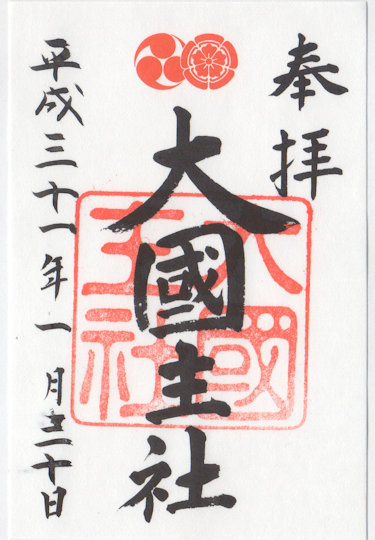 奉拝
大國主社
大國主社
平成三十一年一月二十日